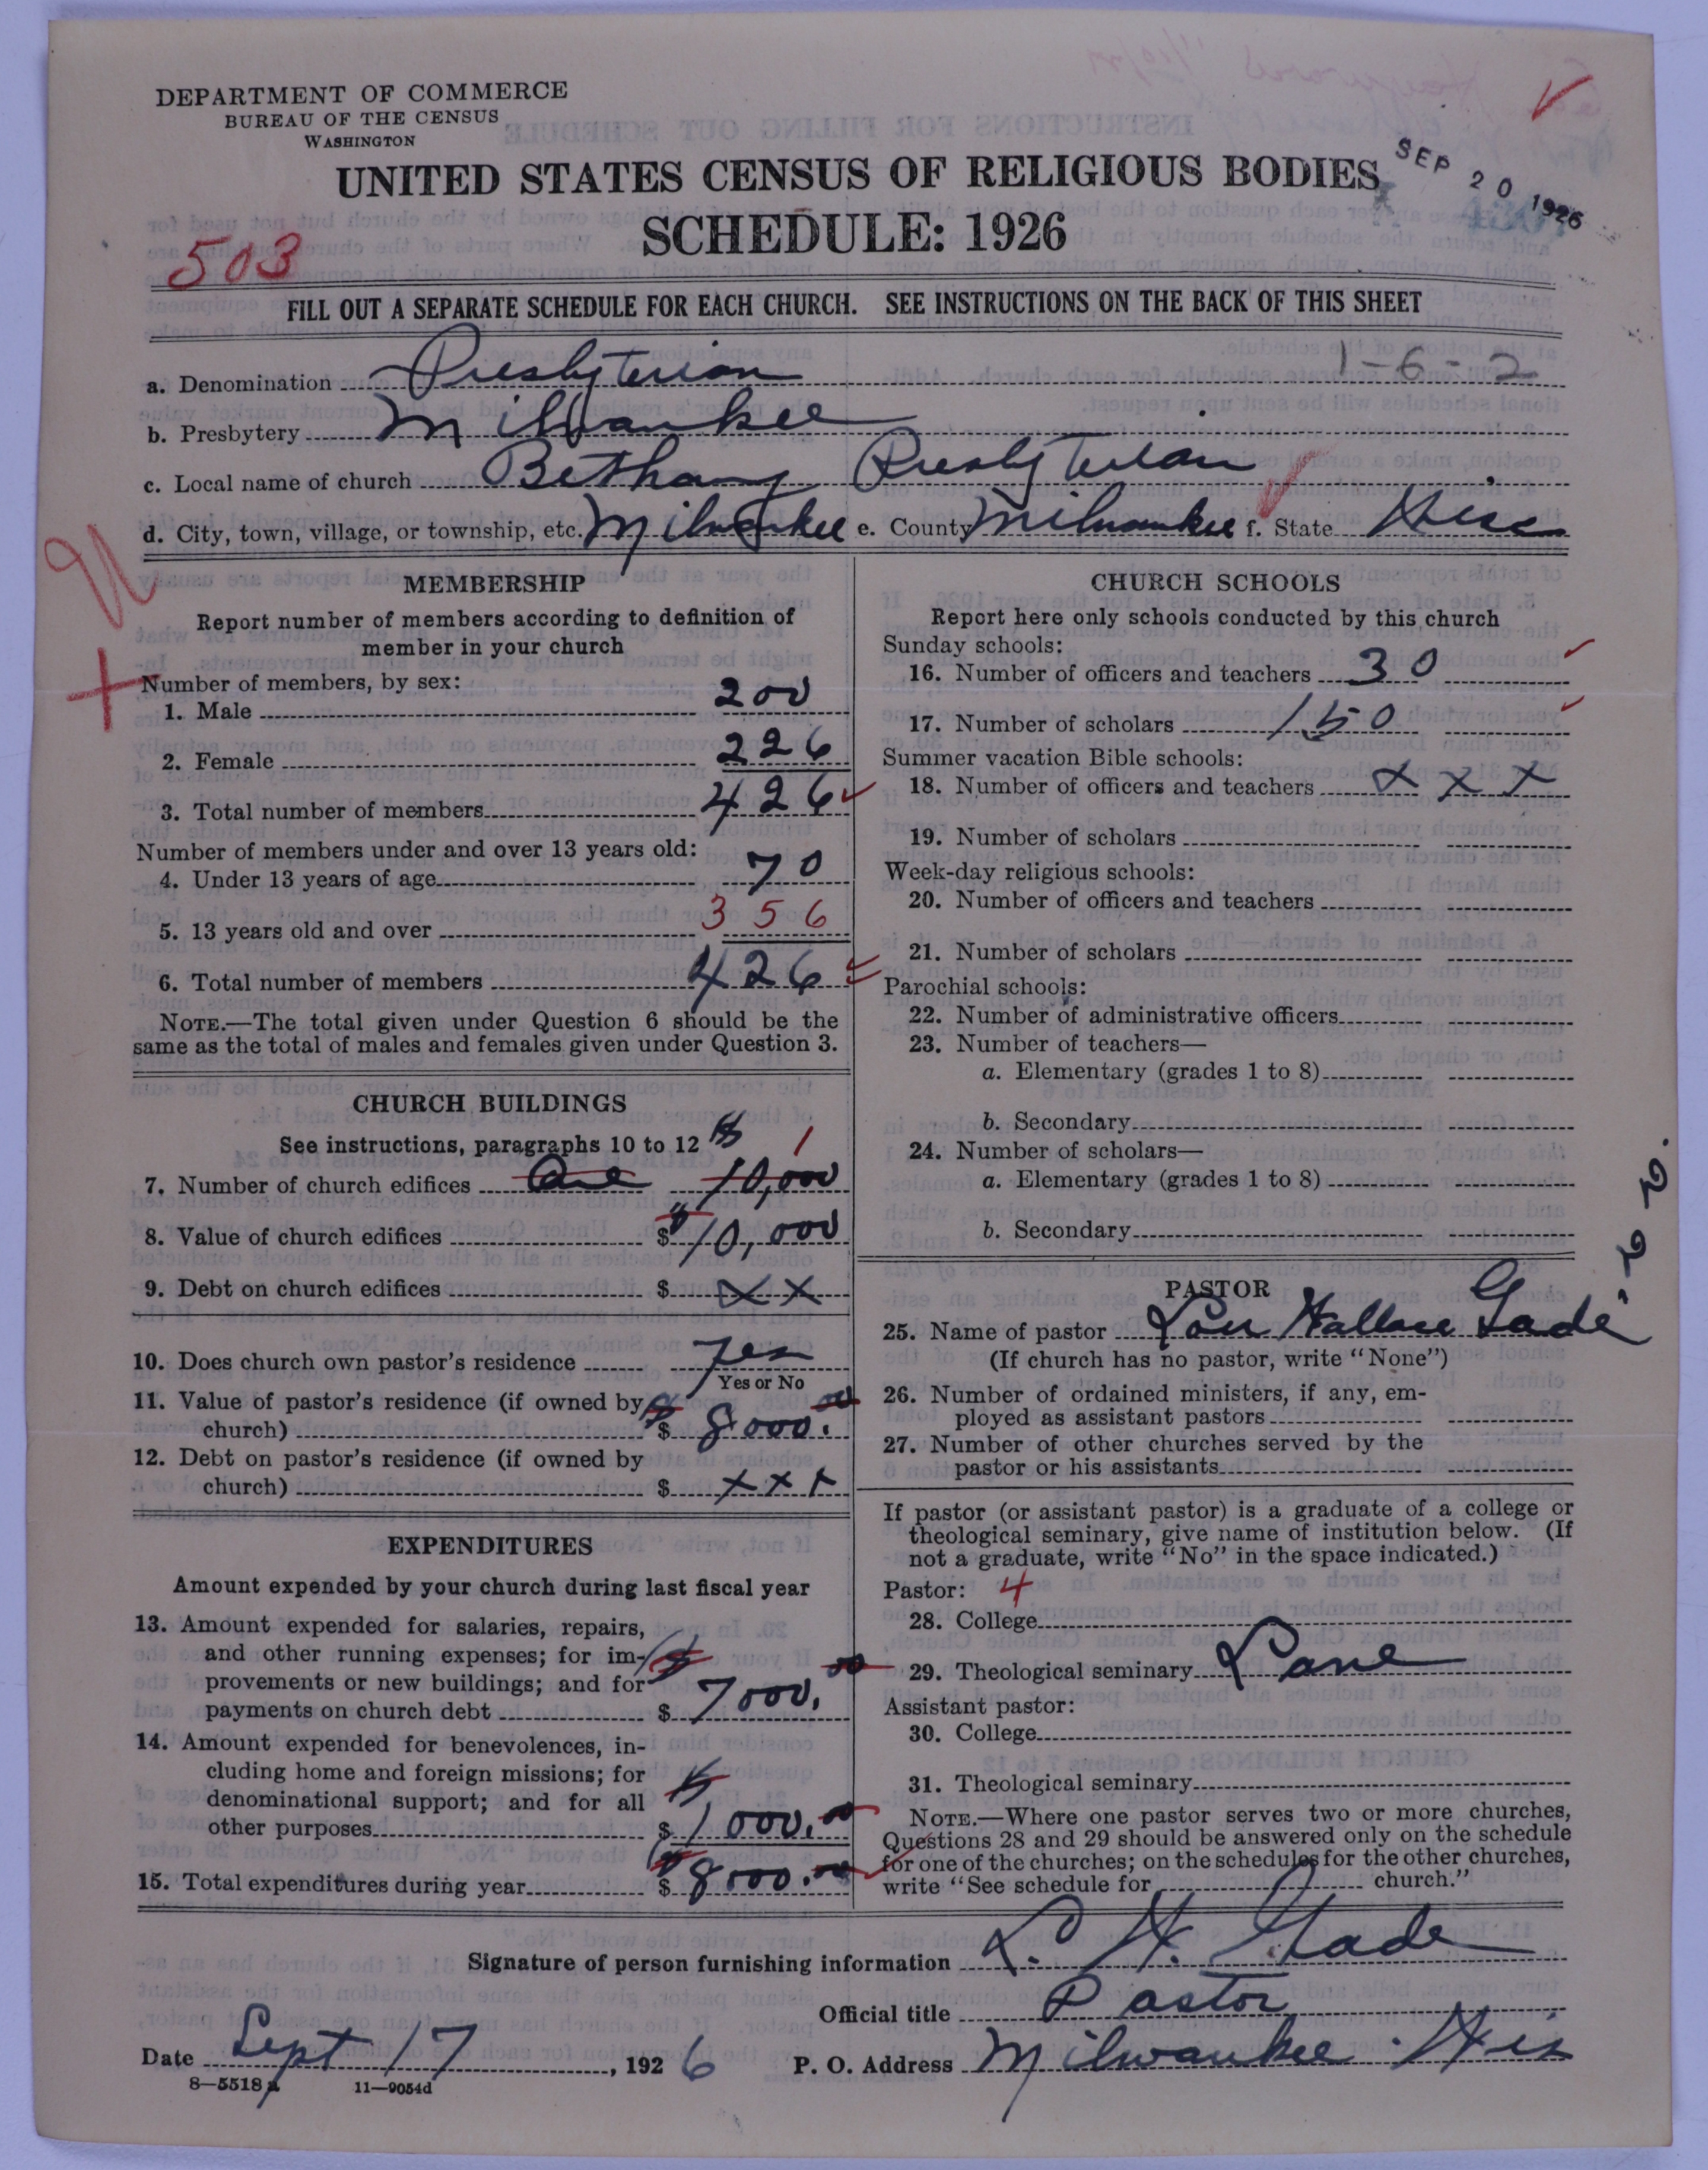 DEPARTMENT OF COMMERCE
BUREAU OF THE CENSUS
WASHINGTON
UNITED STATES CENSUS OF RELIGIOUS BODIES
SCHEDULE: 1926
SEP 20 1926
503
FILL OUT A SEPARATE SCHEDULE FOR EACH CHURCH. SEE INSTRUCTIONS ON THE BACK OF THIS SHEET
a. Denomination Presbyterian 1-6-2
b. Presbytery Milwaukee
c. Local name of church Bethany Presbyterian
d. City, town, village, or township, etc. Milwaukee e. County Milwaukee f. State Wisc
MEMBERSHIP
Report number of members according to definition of
member in your church
Number of members, by sex:
1. Male 200
2. Female 226
3. Total number of members 426
Number of members under and over 13 years old:
4. Under 13 years of age 70
5. 13 years old and over 356
6. Total number of members 426
NOTE.—The total given under Question 6 should be the
same as the total of males and females given under Question 3.
CHURCH BUILDINGS
See instructions, paragraphs 10 to 12 $ 1
7. Number of church edifices One 10,000
8. Value of church edifices $ 10,000
9. Debt on church edifices $ x x
10. Does church own pastor's residence Yes
Yes or No
11. Value of pastor's residence (if owned by
church) $ 8000.00
12. Debt on pastor's residence (if owned by
church) $ x x x
EXPENDITURES
Amount expended by your church during last fiscal year
13. Amount expended for salaries, repairs,
and other running expenses; for im-
provements or new buildings; and for
payments on church debt $ 7000.00
14. Amount expended for benevolences, in-
cluding home and foreign missions; for
denominational support; and for all
other purposes $ 1000.00
15. Total expenditures during year $ 8000.00
CHURCH SCHOOLS
Report here only schools conducted by this church
Sunday schools:
16. Number of officers and teachers 30
17. Number of scholars 150
Summer vacation Bible schools:
18. Number of officers and teachers x x x
19. Number of scholars
Week-day religious schools:
20. Number of officers and teachers
21. Number of scholars
Parochial schools:
22. Number of administrative officers
23. Number of teachers—
a. Elementary (grades 1 to 8)
b. Secondary
24. Number of scholars—
a. Elementary (grades 1 to 8)
b. Secondary
PASTOR
25. Name of pastor Lou Wallace Gade
(If church has no pastor, write "None")
26. Number of ordained ministers, if any, em-
ployed as assistant pastors
27. Number of other churches served by the
pastor or his assistants
If pastor (or assistant pastor) is a graduate of a college or
theological seminary, give name of institution below. (If
not a graduate, write "No" in the space indicated.)
Pastor: 4
28. College
29. Theological seminary Lane
Assistant pastor:
30. College
31. Theological seminary
NOTE.—Where one pastor serves two or more churches,
Questions 28 and 29 should be answered only on the schedule
for one of the churches; on the schedules for the other churches,
write "See schedule for church."
Signature of person furnishing information L. W. Gade
Official title Pastor
Date Sept 17, 1926 P. O. Address Milwaukee Wis
8—5518 a 11—9054d